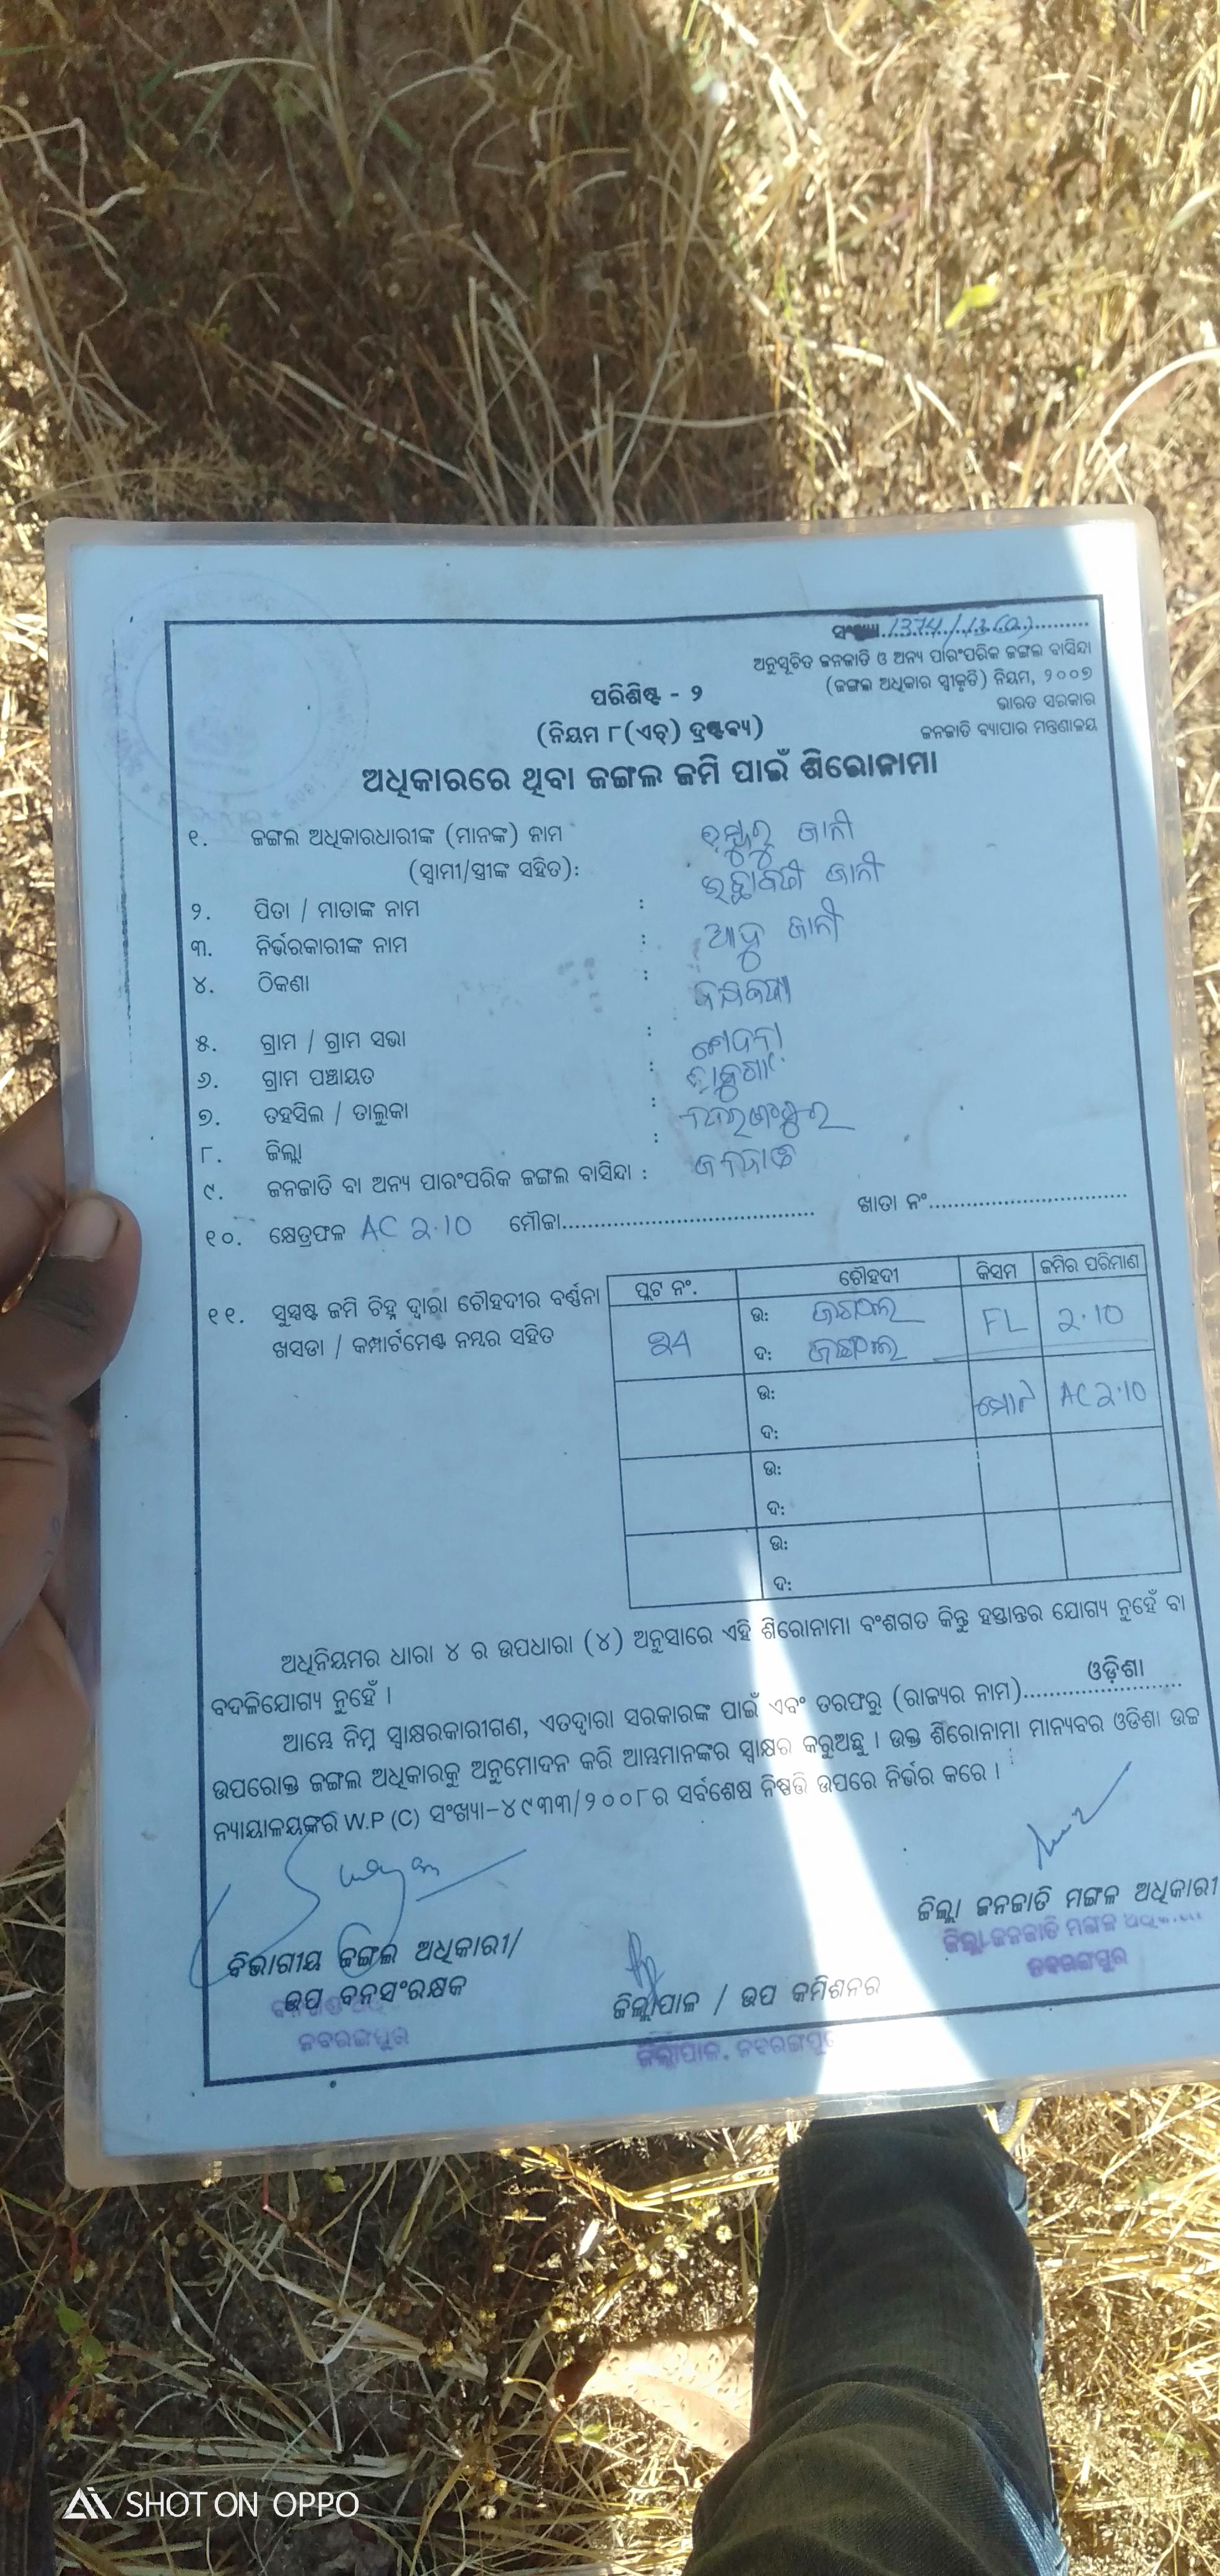 ସଂଖ୍ୟା
ଅନୁସୂଚିତ ଜନଜାତି ଓ ଅନ୍ୟ ପାରଂପରିକ ଜଙ୍ଗଲ ବାସିନ୍ଦା
(ଜଙ୍ଗଲ ଅଧିକାର ସ୍ୱୀକୃତି) ନିୟମ, ୨୦୦୭
ଭାରତ ସରକାର
ଜନଜାତି ବ୍ୟାପାର ମନ୍ତ୍ରଣାଳୟ
ପରିଶିଷ୍ଟ - ୨
(ନିୟମ ୮(ଏଚ୍) ଦ୍ରଷ୍ଟବ୍ୟ)
ଅଧିକାରରେ ଥିବା ଜଙ୍ଗଲ ଜମି ପାଇଁ ଶିରୋନାମା
୧. ଜଙ୍ଗଲ ଅଧିକାରଧାରୀଙ୍କ (ମାନଙ୍କ) ନାମ ଜାନୀ
(ସ୍ୱାମୀ/ସ୍ତ୍ରୀଙ୍କ ସହିତ): ଜାନୀ
୨. ପିତା / ମାତାଙ୍କ ନାମ : ଜାନୀ
୩. ନିର୍ଭରକାରୀଙ୍କ ନାମ :
୪. ଠିକଣା :
୫. ଗ୍ରାମ / ଗ୍ରାମ ସଭା :
୬. ଗ୍ରାମ ପଞ୍ଚାୟତ :
୭. ତହସିଲ / ତାଲୁକା :
୮. ଜିଲ୍ଲା :
୯. ଜନଜାତି ବା ଅନ୍ୟ ପାରଂପରିକ ଜଙ୍ଗଲ ବାସିନ୍ଦା : ଜନଜାତି
୧୦. କ୍ଷେତ୍ରଫଳ AC 2.10 ମୌଜା ଖାତା ନଂ
୧୧. ସୁସ୍ପଷ୍ଟ ଜମି ଚିହ୍ନ ଦ୍ୱାରା ଚୌହଦୀର ବର୍ଣ୍ଣନା
ଖସଡା / କମ୍ପାର୍ଟମେଣ୍ଟ ନମ୍ବର ସହିତ
ପ୍ଲଟ ନଂ. ଚୌହଦୀ କିସମ ଜମିର ପରିମାଣ
ଉ: ଜଙ୍ଗଲ FL 2.10
ଦ: ଜଙ୍ଗଲ
ଉ: ମୋଟ AC 2.10
ଦ:
ଉ:
ଦ:
ଉ:
ଦ:
ଅଧିନିୟମର ଧାରା ୪ ର ଉପଧାରା (୪) ଅନୁସାରେ ଏହି ଶିରୋନାମା ବଂଶଗତ କିନ୍ତୁ ହସ୍ତାନ୍ତର ଯୋଗ୍ୟ ନୁହେଁ ବା
ବଦଳିଯୋଗ୍ୟ ନୁହେଁ ।
ଆମ୍ଭେ ନିମ୍ନ ସ୍ୱାକ୍ଷରକାରୀଗଣ, ଏତଦ୍ୱାରା ସରକାରଙ୍କ ପାଇଁ ଏବଂ ତରଫରୁ (ରାଜ୍ୟର ନାମ) ଓଡ଼ିଶା
ଉପରୋକ୍ତ ଜଙ୍ଗଲ ଅଧିକାରକୁ ଅନୁମୋଦନ କରି ଆମ୍ଭମାନଙ୍କର ସ୍ୱାକ୍ଷର କରୁଅଛୁ । ଉକ୍ତ ଶିରୋନାମା ମାନ୍ୟବର ଓଡିଶା ଉଚ୍ଚ
ନ୍ୟାୟାଳୟଙ୍କର W.P (C) ସଂଖ୍ୟା-୪୯୩୩/୨୦୦୮ର ସର୍ବଶେଷ ନିଷ୍ପତ୍ତି ଉପରେ ନିର୍ଭର କରେ ।
ଜିଲ୍ଲା ଜନଜାତି ମଙ୍ଗଳ ଅଧିକାରୀ
ଜିଲ୍ଲା ଜନଜାତି ମଙ୍ଗଳ
ନବରଙ୍ଗପୁର
ବିଭାଗୀୟ ଜଙ୍ଗଲ ଅଧିକାରୀ/
ଉପ ବନସଂରକ୍ଷକ
ନବରଙ୍ଗପୁର
ଜିଲ୍ଲାପାଳ / ଉପ କମିଶନର
ଜିଲ୍ଲାପାଳ, ନବରଙ୍ଗପୁର
SHOT ON OPPO